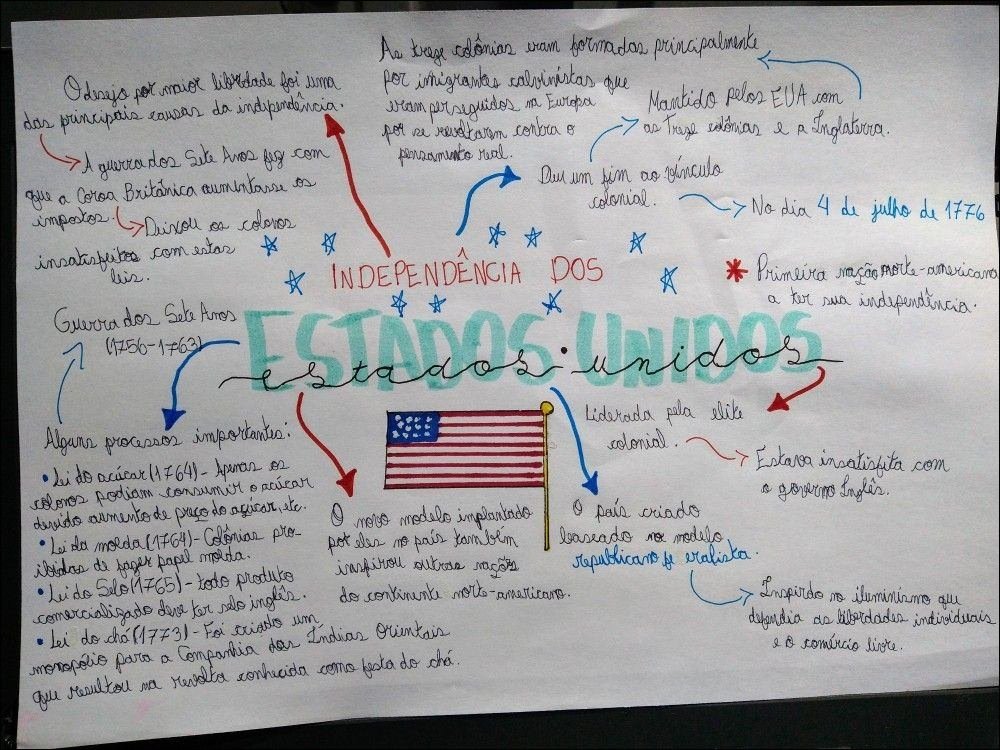 O desejo por maior liberdade foi uma
das principais causas da independência.
A guerra dos Sete Anos fez com
que a Coroa Britânica aumentasse os
impostos.
Deixou os colonos
insatisfeitos com estas
leis.
As treze colônias eram formadas principalmente
por imigrantes calvinistas que
eram perseguidos na Europa
por se revoltarem contra o
pensamento real.
Mantido pelos EUA com
as Treze colônias e a Inglaterra.
Deu um fim ao vínculo
colonial.
No dia 4 de julho de 1776
INDEPENDÊNCIA DOS
ESTADOS UNIDOS
estados unidos
* Primeira nação norte-americana
a ter sua independência.
Guerra dos Sete Anos
(1756-1763)
Alguns processos importantes:
• Lei do açúcar (1764) - Apenas os
colonos podiam consumir o açúcar
devido aumento de preço do açúcar, etc.
• Lei da moeda (1764) - Colônias pro-
ibidas de fazer papel moeda.
• Lei do Selo (1765) - todo produto
comercializado deve ter selo inglês.
• Lei do chá (1773) - Foi criado um
monopólio para a Companhia das Índias Orientais
que resultou na revolta conhecida como festa do chá.
O novo modelo implantado
por eles no país também
inspirou outras nações
do continente norte-americano.
O país criado
baseado no modelo
republicano federalista.
Inspirado no iluminismo que
defendia as liberdades individuais
e o comércio livre.
Liderada pela elite
colonial.
Estava insatisfita com
o governo Inglês.